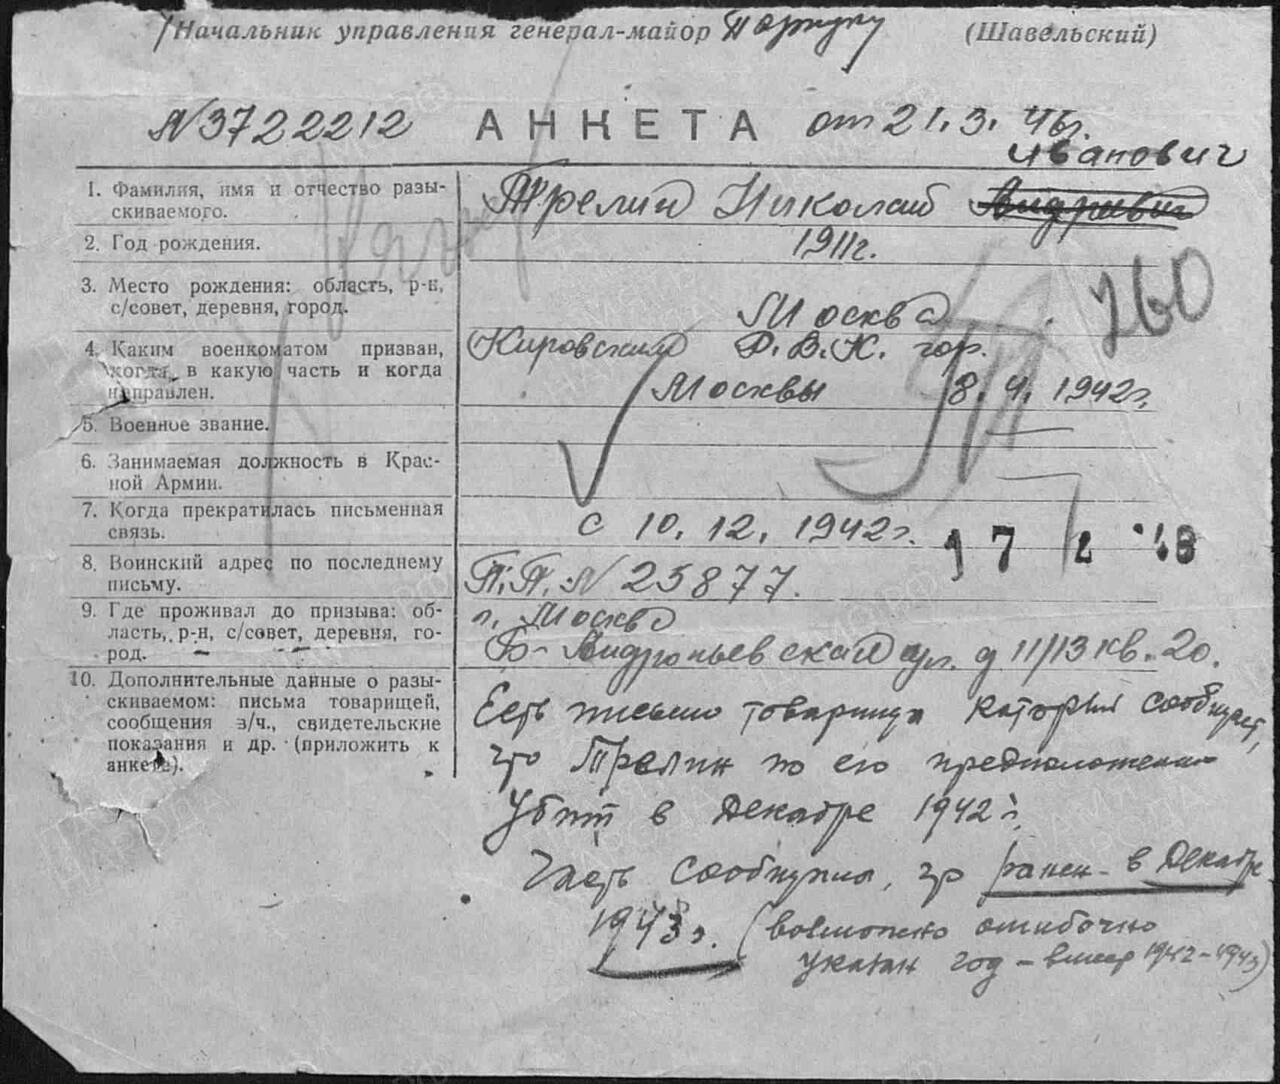 Начальник управления генерал-майор (Шавельский)
№3722212 АНКЕТА от 21.3.46г.
Иванович
1. Фамилия, имя и отчество разы-
скиваемого.
Трелин Николай Андреевич
2. Год рождения.
1911г.
3. Место рождения: область, р-н,
с/совет, деревня, город.
Москва
260
4. Каким военкоматом призван,
когда, в какую часть и когда
направлен.
Кировским Р.В.К. гор.
Москвы 8.4.1942г.
5. Военное звание.
—
6. Занимаемая должность в Крас-
ной Армии.
—
7. Когда прекратилась письменная
связь.
с 10.12.1942г.
17 48
8. Воинский адрес по последнему
письму.
П.П.№25877.
9. Где проживал до призыва: об-
ласть, р-н, с/совет, деревня, го-
род.
г. Москва
Б-Андроньевская ул. д 11/13 кв. 20.
10. Дополнительные данные о разы-
скиваемом: письма товарищей,
сообщения з/ч., свидетельские
показания и др. (приложить к
анкете).
Есть письмо товарища который сообщает,
что Трелин по его предположению
убит в декабре 1942г.
Часть сообщила, что ранен в декабре
1943г. (возможно ошибочно
указан год – вмест 1942-1943)